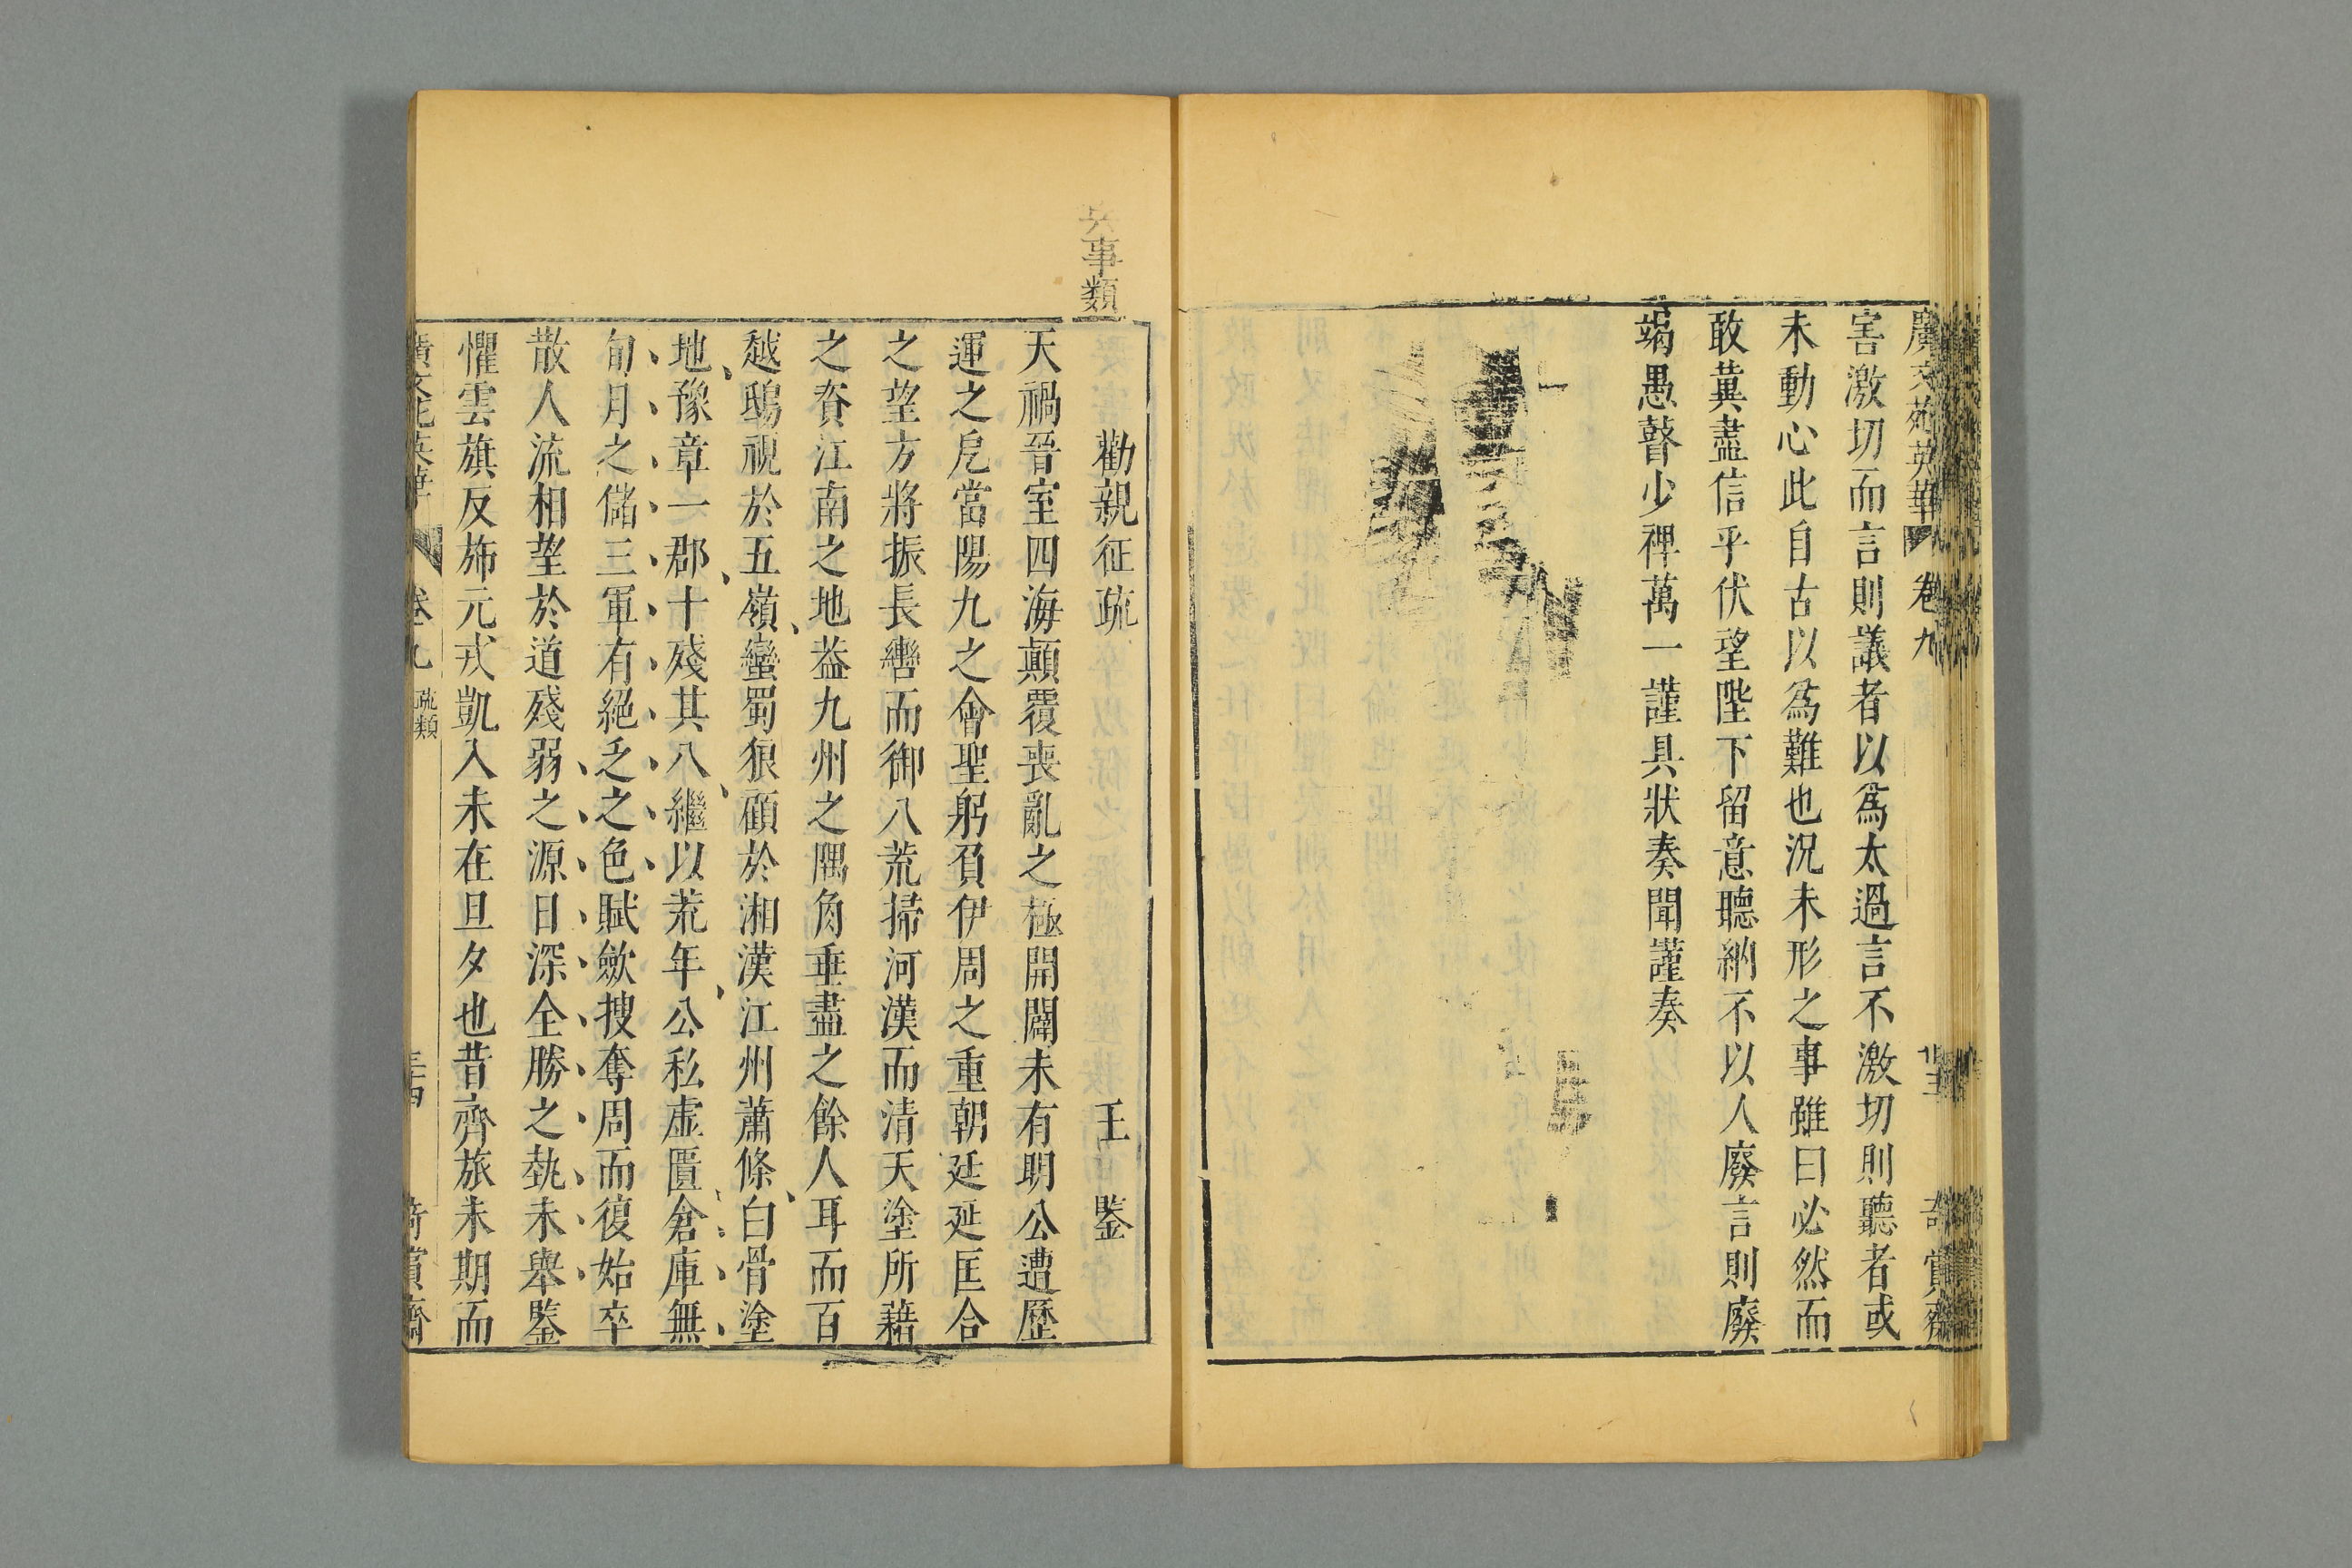 廣文苑英華 卷九 奇賞齋
害激切而言則議者以爲太過言不激切則聽者或
未動心此自古以爲難也況未形之事雖曰必然而
敢冀盡信乎伏望陛下留意聽納不以人廢言則廢
竭愚瞽少裨萬一謹具狀奏聞謹奏
兵事類
勸親征疏 王鑒
天禍晉室四海顛覆喪亂之極開闢未有明公遭歷
運之戹當陽九之會聖躬負伊周之重朝廷延匡合
之望方將振長轡而御八荒掃河漢而清天塗所藉
之資江南之地葢九州之隅角垂盡之餘人耳而百
越鴟視於五嶺蠻蜀狼顧於湘漢江州蕭條白骨塗
地豫章一郡十殘其八繼以荒年公私虛匱倉庫無
旬月之儲三軍有絕乏之色賦斂搜奪周而復始卒
散人流相望於道殘弱之源日深全勝之埶未舉鑒
懼雲旗反斾元戎凱入未在旦夕也昔齊旅未期而
廣文苑英華 卷九 疏類 三四 奇賞齋